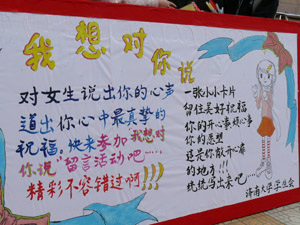 我想对你说
对女生说出你的心事
道出你心中最真挚的
祝福。快来参加我想对
你说“留言活动吧……
精彩不容错过啊!!!
一张小小卡片
留住美好祝福
你的开心事烦心事
你的愿望
这是你敞开心扉
的地方!!!
统统写出来吧……
济南大学学生会